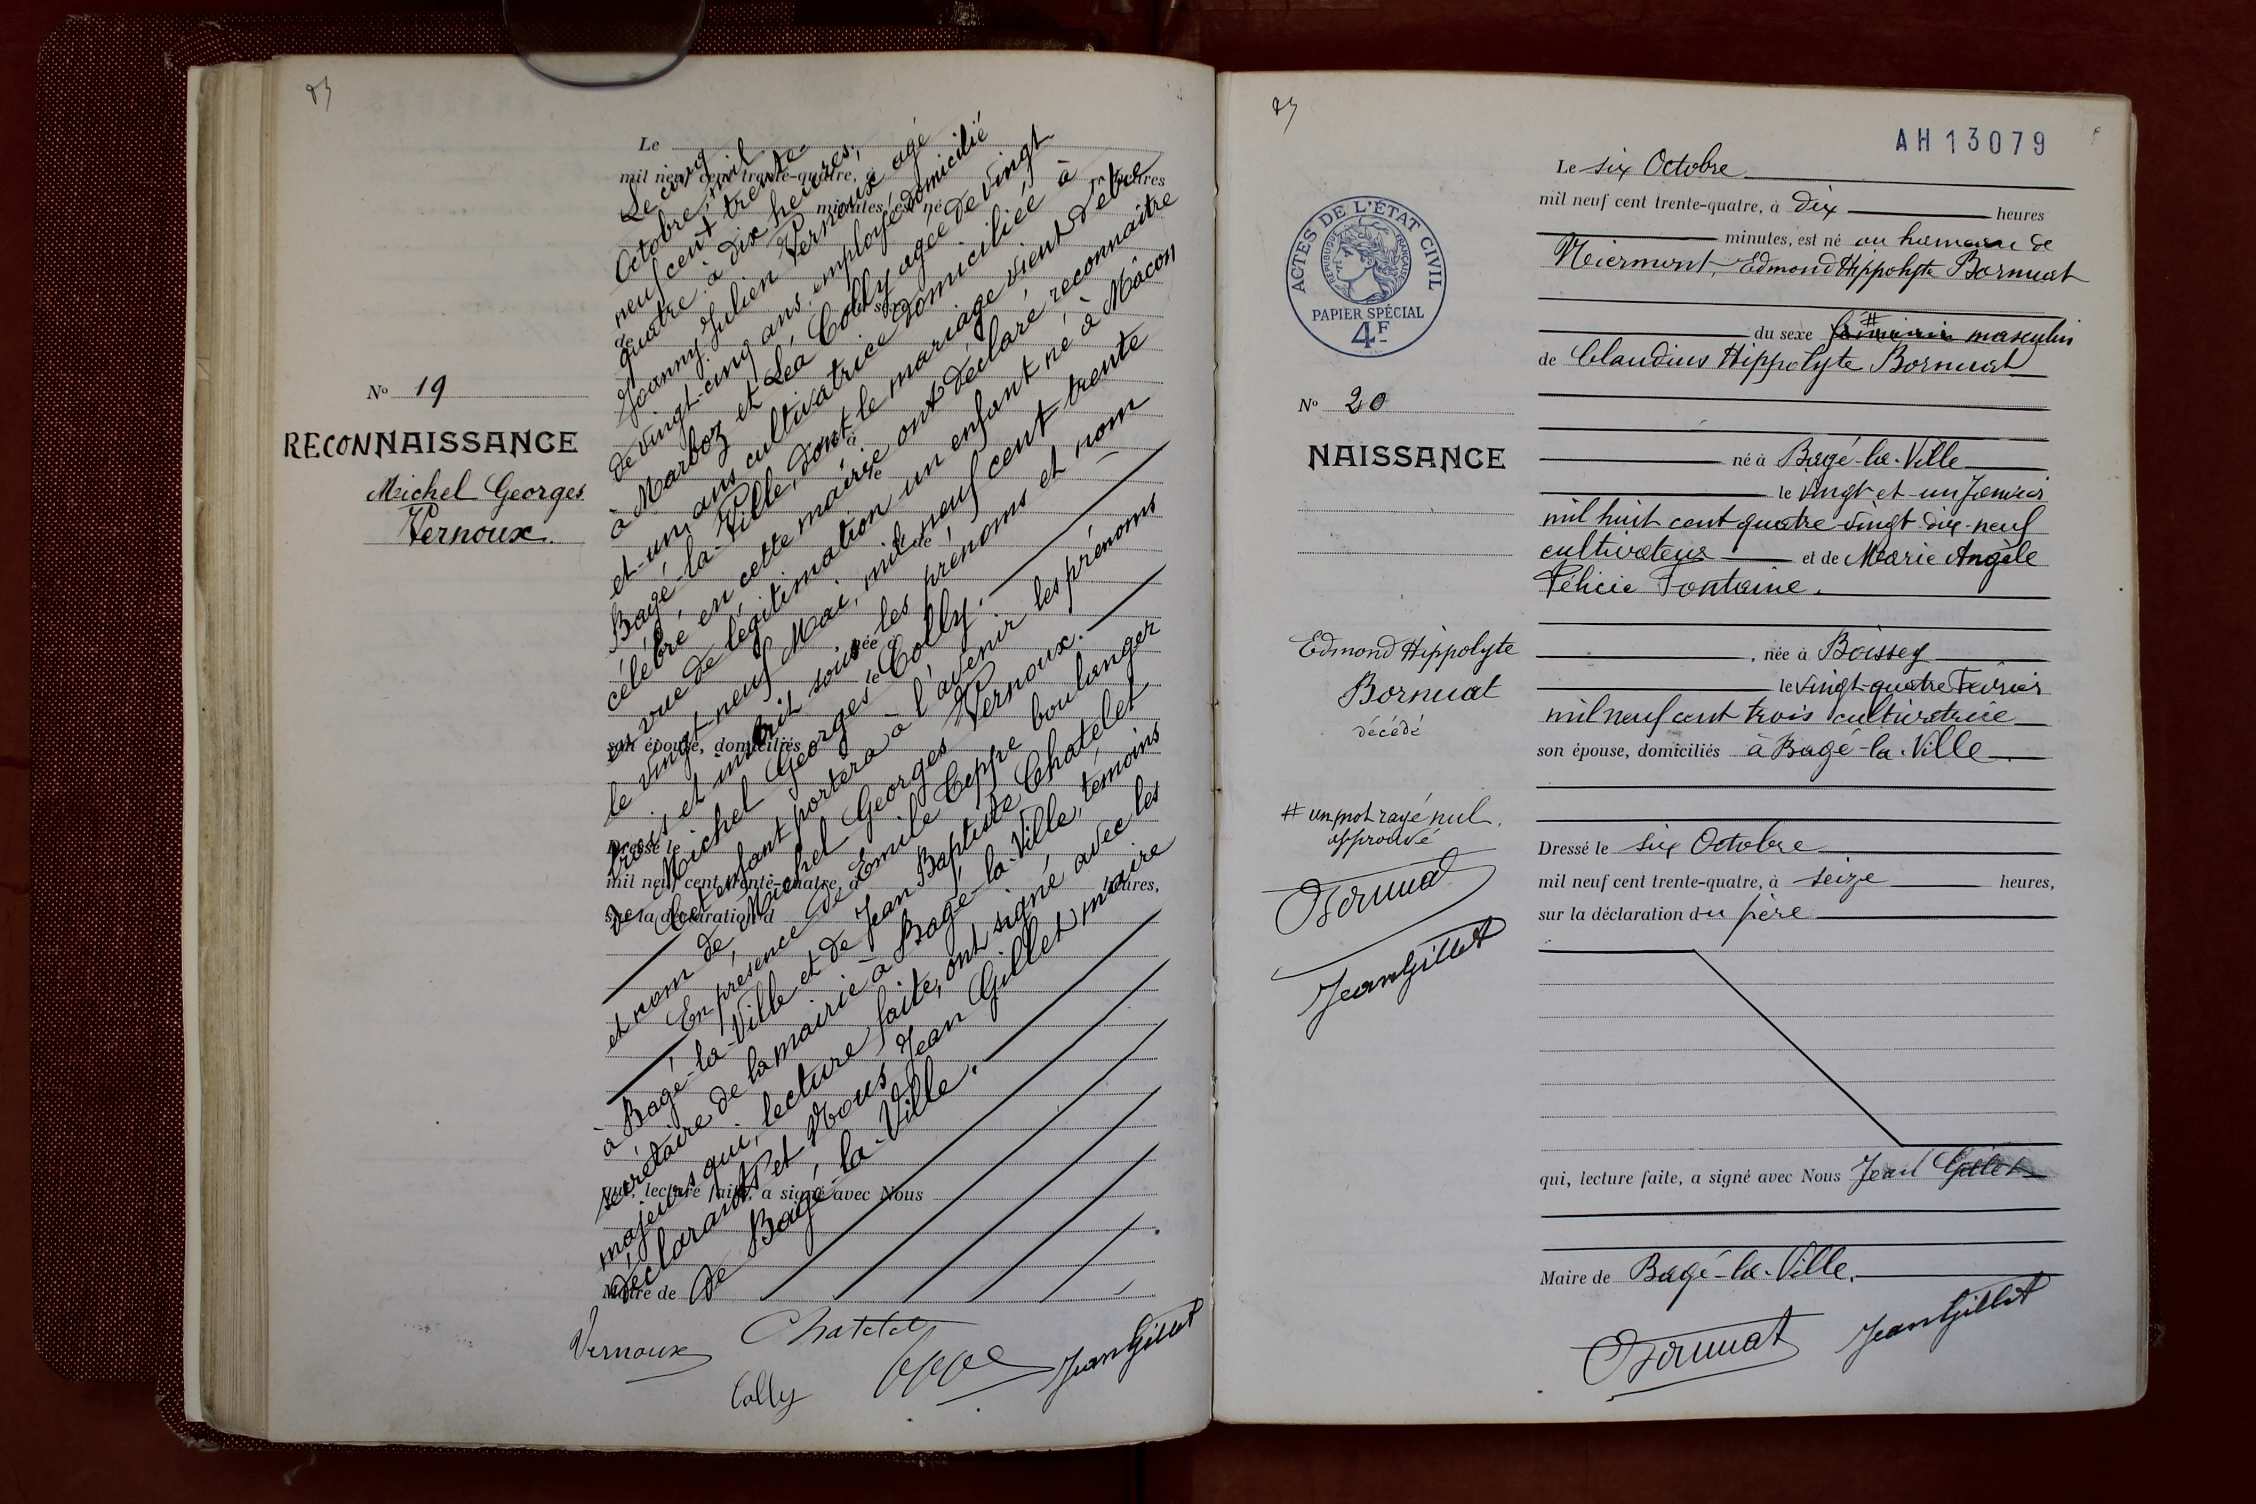 83
Le
mil neuf cent trente-quatre, à heures
minutes, est né
N° 19
RECONNAISSANCE
Michel Georges
Vernoux.
Le cinq
Octobre, mil
neuf cent trente-
quatre, à dix heures,
Joanny Julien Vernoux agé
de vingt-cinq ans, employé domicilié
à Marboz et Léa Colly agée de vingt
et-un ans cultivatrice domiciliée à
Bagé-la-Ville, dont le mariage vient d'être
célébré en cette mairie ont déclaré reconnaître
en vue de légitimation un enfant né à Mâcon
le vingt-neuf Mai, mil neuf cent trente
trois et inscrit sous les prénoms et nom
de Michel Georges Colly.
Cet enfant portera à l'avenir les prénoms
et nom de, Michel Georges Vernoux.
En présence de Emile Ceppe boulanger
à Bagé-la-Ville et de Jean Baptiste Chatelet
secrétaire de la mairie à Bagé-la-Ville, témoins
majeurs qui, lecture faite, ont signé avec les
déclarants et Nous Jean Gillet maire
de Bagé-la-Ville.
son épouse, domiciliés
Dressé le
mil neuf cent trente-quatre, à heures,
sur la déclaration d
qui, lecture faite, a signé avec Nous
Maire de
Vernoux Chatelet
Colly Ceppe Jean Gillet
AH 13079
Le six Octobre
mil neuf cent trente-quatre, à dix heures
minutes, est né au hameau de
Edmond Hippolyte Bornuat
du sexe féminin # masculin
de Claudius Hippolyte Bornuat
né à Bagé-la-Ville
le vingt et un Janvier
mil huit cent quatre vingt dix-neuf
cultivateur et de Marie Angèle
Félicie Fontaine.
, née à Boissey
le vingt-quatre Février
mil neuf cent trois cultivatrice
son épouse, domiciliés à Bagé-la-Ville.
Dressé le six Octobre
mil neuf cent trente-quatre, à seize heures,
sur la déclaration du père
qui, lecture faite, a signé avec Nous Jean Gillet
Maire de Bagé-la-Ville.
Bornuat Jean Gillet
ACTES DE L'ÉTAT CIVIL
RÉPUBLIQUE FRANÇAISE
PAPIER SPÉCIAL
4F
N° 20
NAISSANCE
Edmond Hippolyte
Bornuat
décédé
# un mot rayé nul.
approuvé
Bornuat
Jean Gillet